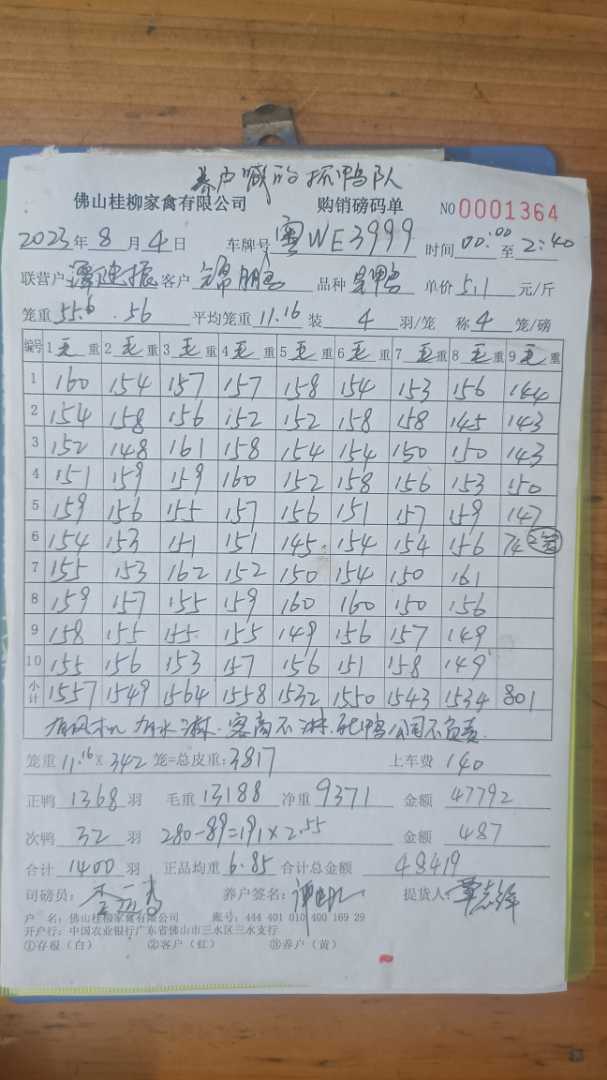 养户喊的抓鸭队
佛山桂柳家禽有限公司 购销磅码单 NO 0001364
2023年8月4日 车牌号 粤WE3999 时间 00:00 至 2:40
联营户 谭建振 客户 锦鹏 品种 单价 5.1 元/斤
笼重 55.6 . 56 平均笼重 11.16 装 4 羽/笼 称 4 笼/磅
编号 1 毛 重 2 毛 重 3 毛 重 4 毛 重 5 毛 重 6 毛 重 7 毛 重 8 毛 重 9 毛 重
1 160 154 157 157 158 154 153 156 144
2 154 158 156 152 152 158 158 145 143
3 152 148 161 158 154 154 150 150 143
4 151 159 159 160 152 158 156 153 150
5 159 156 155 157 156 151 157 159 147
6 154 153 151 151 145 154 154 156 74 2笼
7 155 153 162 152 150 154 150 161
8 159 157 155 159 160 160 150 156
9 158 155 155 155 149 156 157 149
10 155 156 153 157 156 151 158 149
小计 1557 1549 1564 1558 1532 1550 1543 1534 801
有风机 有水淋.客商不淋.死鸭公司不负责
笼重 11.16 × 342 笼=总皮重: 3817 上车费 140
正鸭 1368 羽 毛重 13188 净重 9371 金额 47792
次鸭 32 羽 280-89=191×2.55 金额 487
合计 1400 羽 正品均重 6.85 合计总金额 48419
司磅员: 养户签名: 提货人:
户 名: 佛山桂柳家禽有限公司 账号: 444 401 010 400 169 29
开户行: 中国农业银行广东省佛山市三水区三水支行
①存根（白） ②客户（红） ③养户（黄）